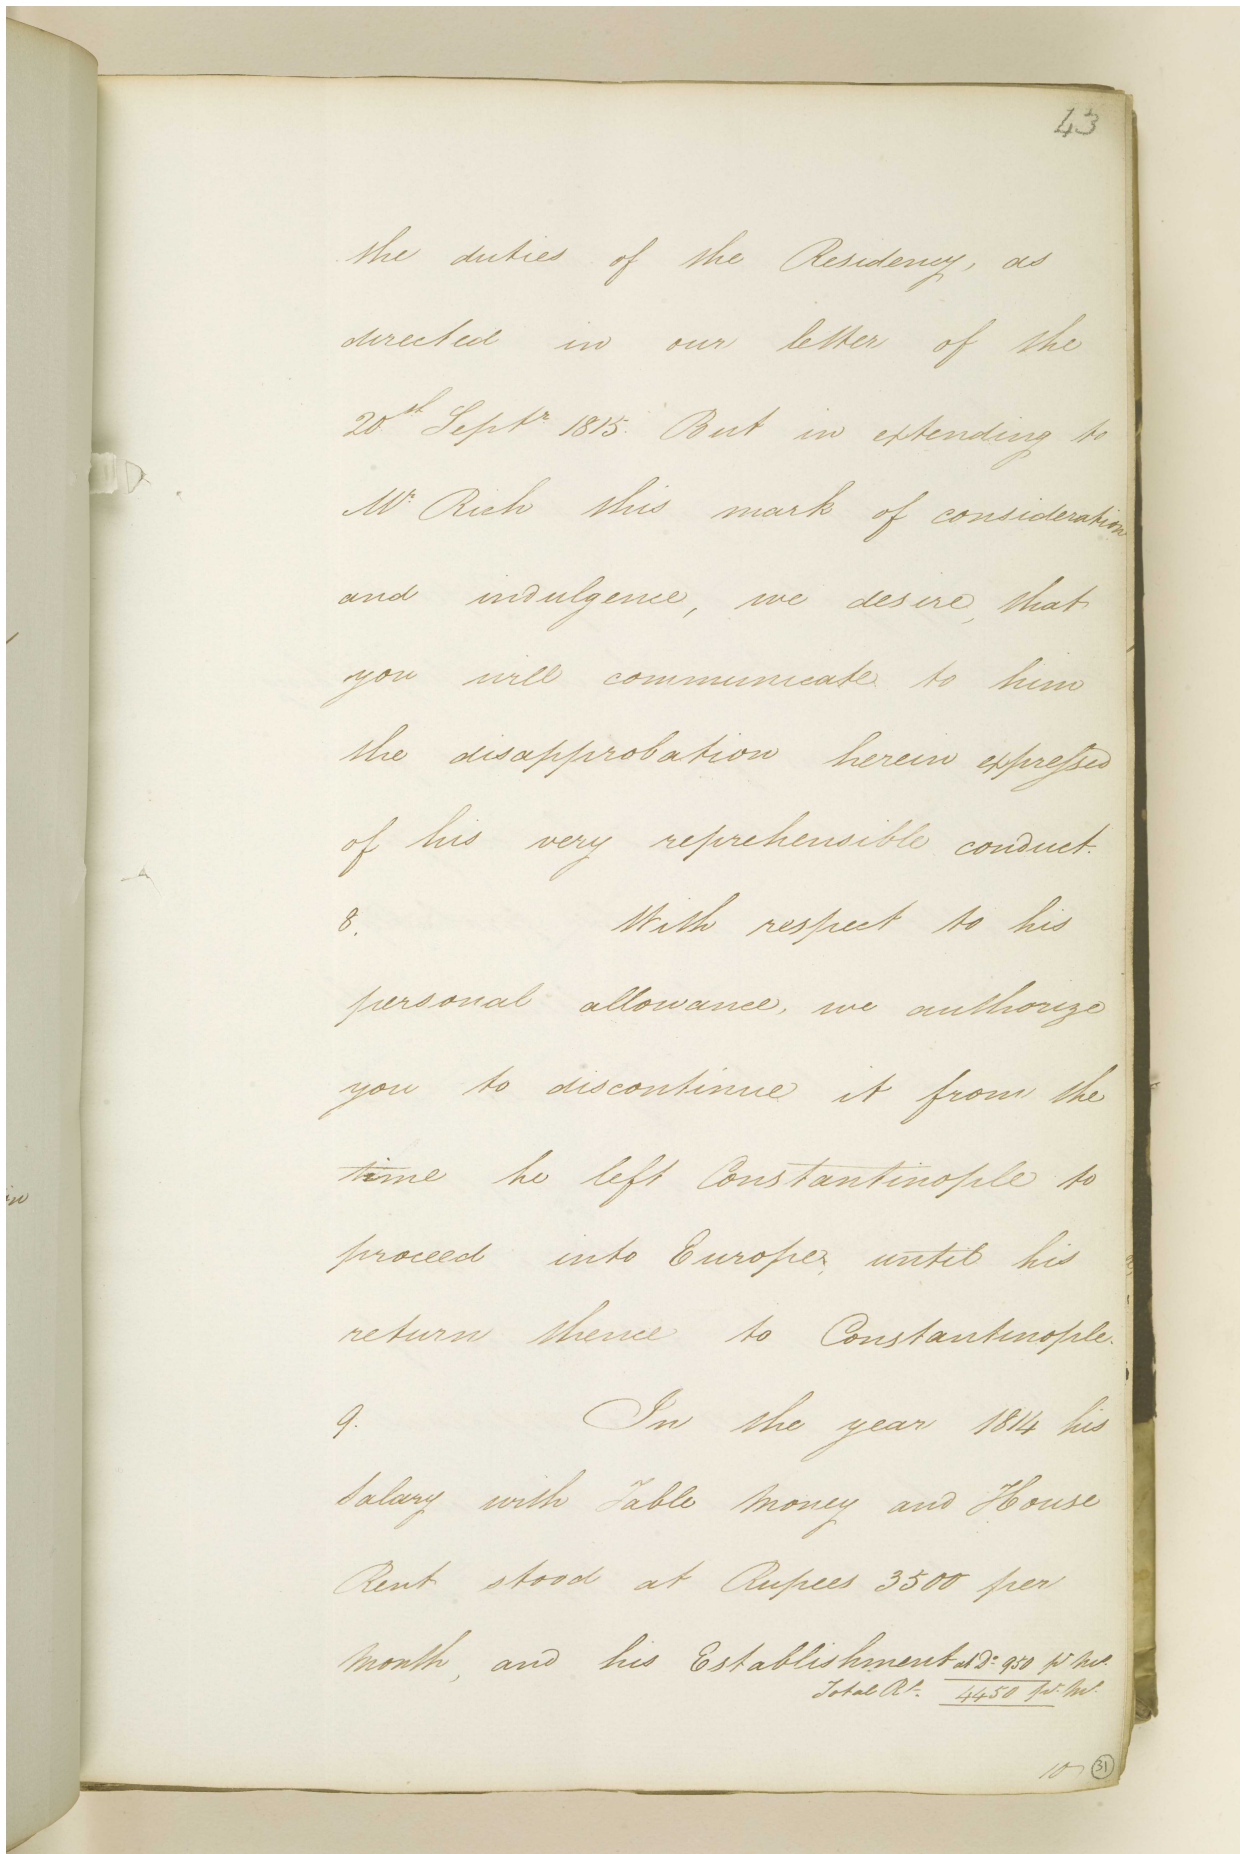 43
the duties of the Residency, as
directed in our letter of the
20th Septr 1815. But in extending to
Mr. Rich this mark of consideration
and indulgence, we desire, that
you will communicate to him
the disapprobation herein expressed
of his very reprehensible conduct.
8. With respect to his
personal allowance, we authorize
you to discontinue it from the
time he left Constantinople to
proceed into Europe, until his
return thence to Constantinople.
9. In the year 1814 his
Salary with Table Money and House
Rent stood at Rupees 3500 per
Month, and his Establishment at Do. 950 pr. Mo.
Total Rs. 4450 pr. Mo.
10
31